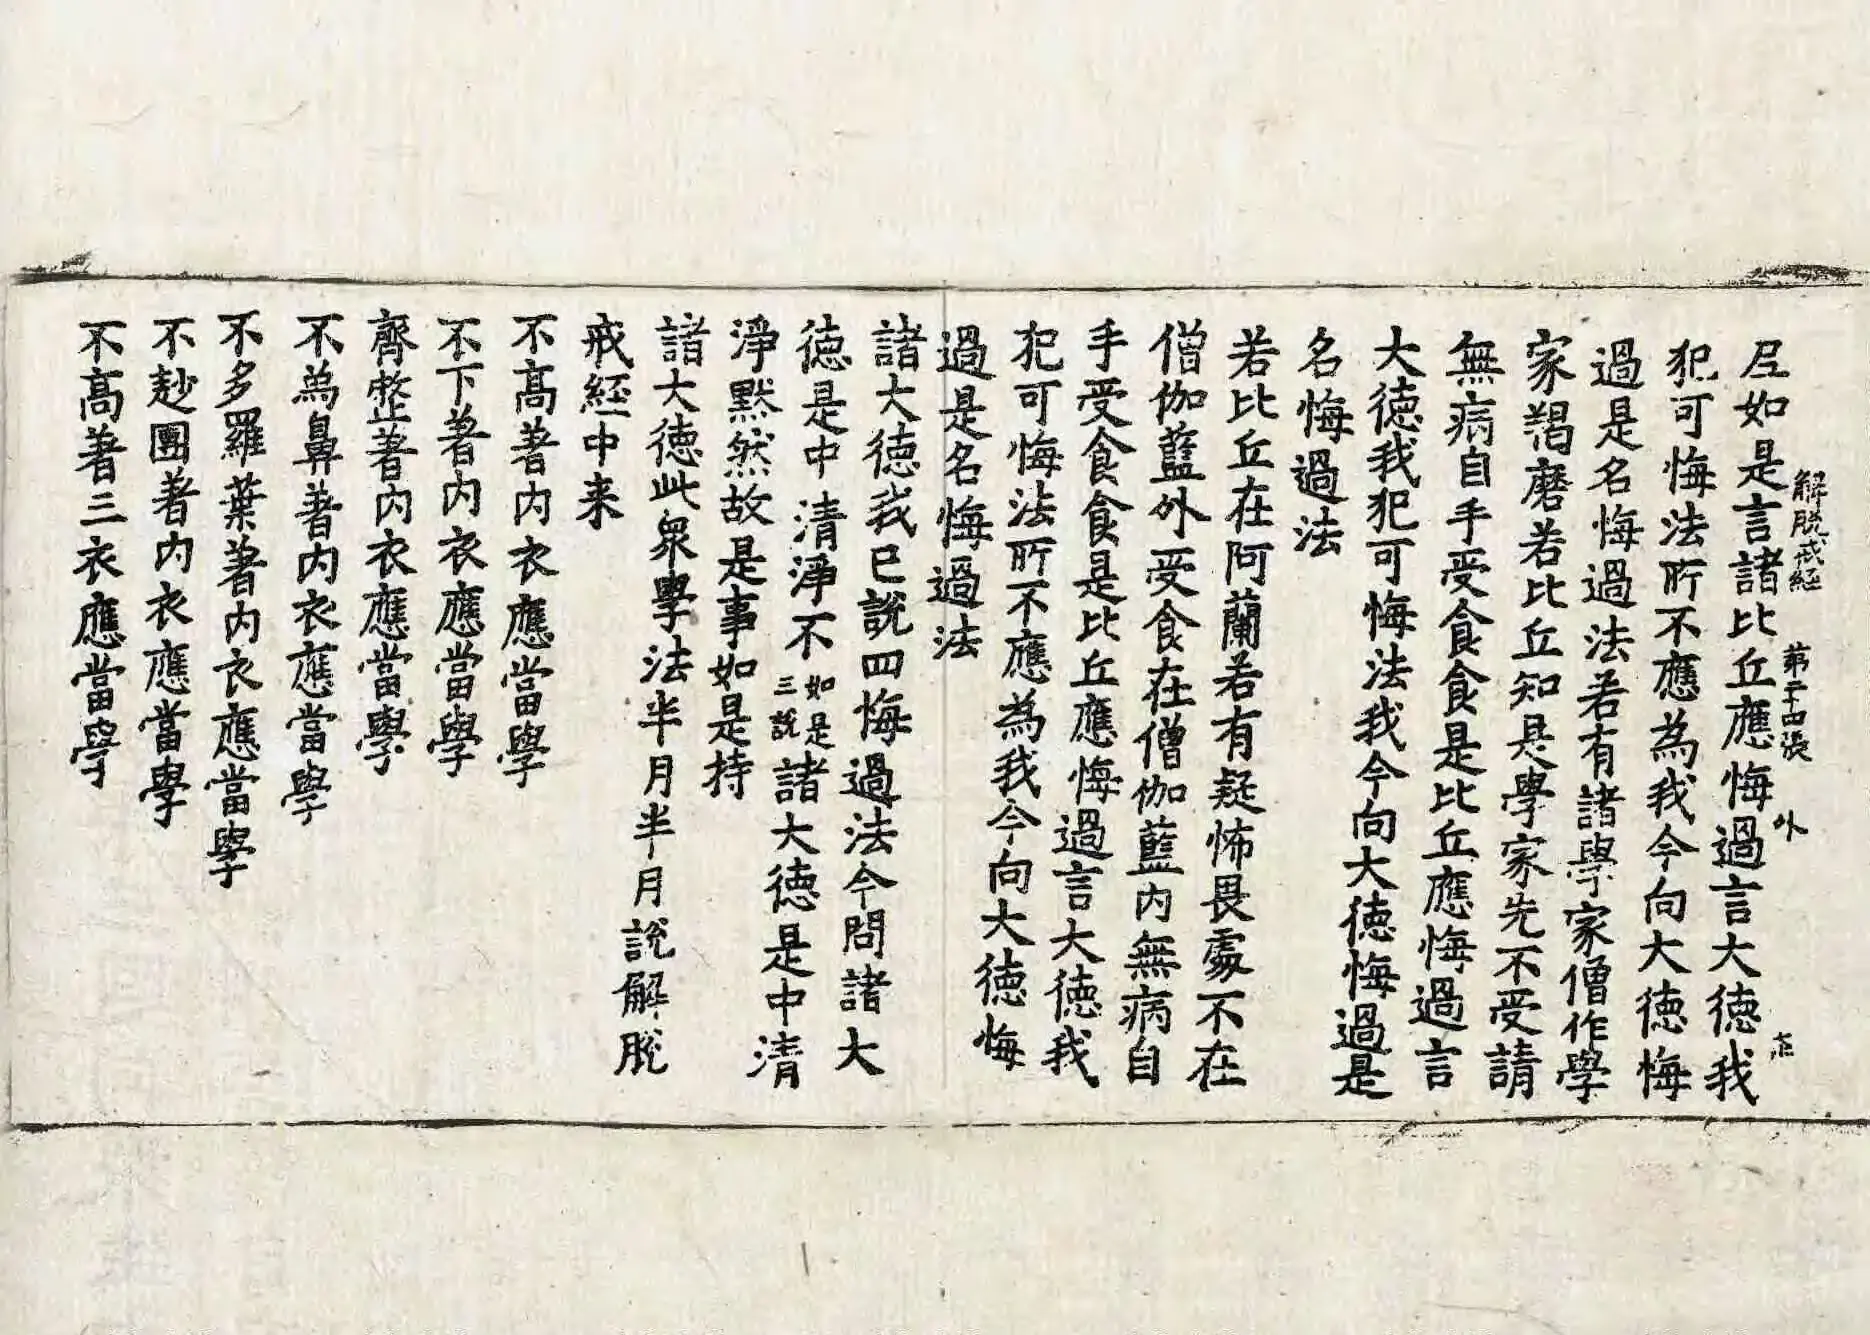 解脱戒経　第二十四張　外
尼如是言諸比丘應悔過言大德我
犯可悔法所不應為我今向大德悔
過是名悔過法若有諸學家僧作學
家羯磨若比丘知是學家先不受請
無病自手受食食是比丘應悔過言
大德我犯可悔法我今向大德悔過是
名悔過法
若比丘在阿蘭若有疑怖畏處不在
僧伽藍外受食在僧伽藍內無病自
手受食食是比丘應悔過言大德我
犯可悔法所不應為我今向大德悔
過是名悔過法
諸大德我已說四悔過法今問諸大
德是中清淨不如是三說諸大德是中清
淨默然故是事如是持
諸大德此眾學法半月半月說解脫
戒經中来
不高著內衣應當學
不下著內衣應當學
齊整著內衣應當學
不為鼻著內衣應當學
不多羅葉著內衣應當學
不麨團著內衣應當學
不高著三衣應當學